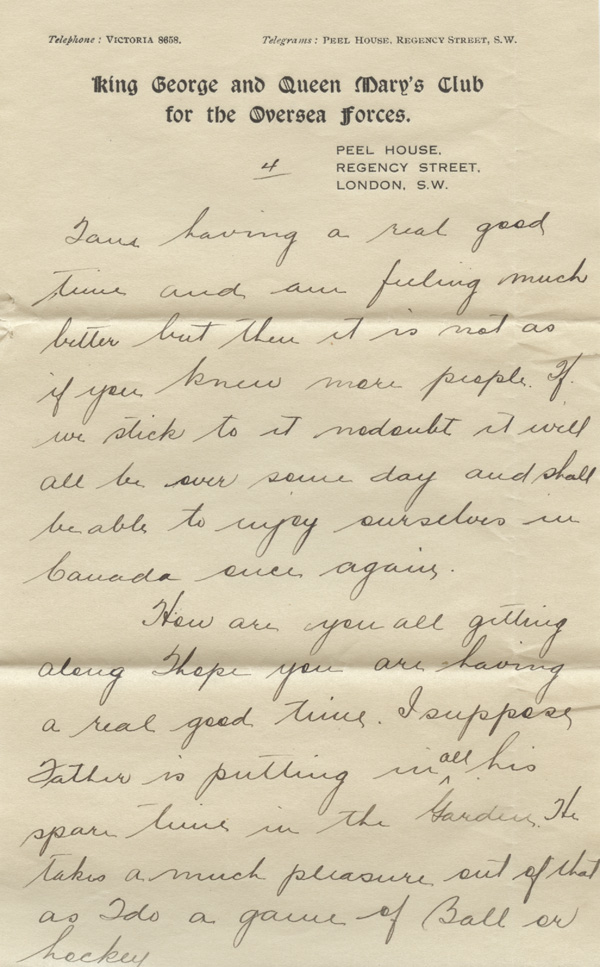 Telephone: VICTORIA 8658. Telegrams: PEEL HOUSE, REGENCY STREET, S.W.
King George and Queen Mary's Club
for the Oversea Forces.
PEEL HOUSE,
4 REGENCY STREET,
LONDON, S.W.
I am having a real good
time and am feeling much
better but then it is not as
if you knew more people. If
we stick to it nodoubt it will
all be over some day and shall
be able to injoy ourselves in
Canada once again.
How are you all getting
along I hope you are having
a real good time. I suppose
Father is putting in all his
spare time in the Garden. He
takes a much pleasure out of that
as I do a game of Ball or
hockey